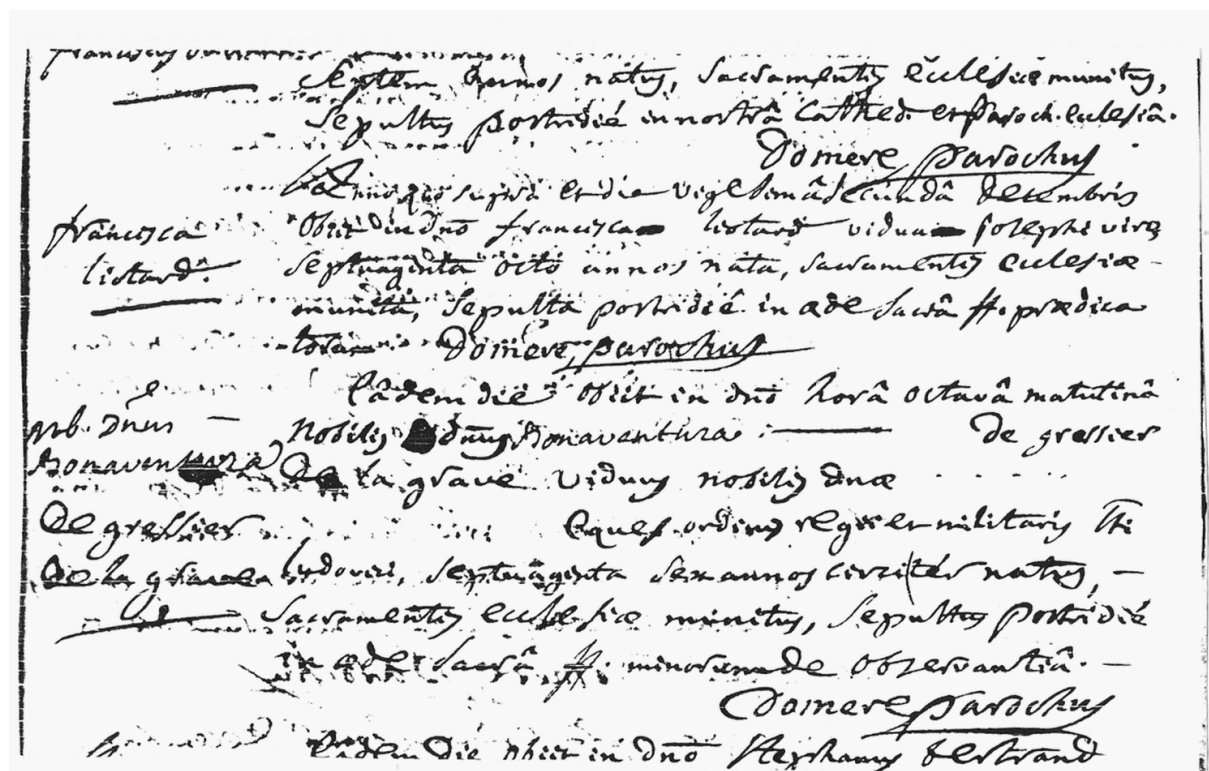 franciscus
septem annos natus, sacramentis ecclesiæ munitus,
sepultus postridiè in nostrâ Cathed. et Paroch. ecclesiâ.
Domere Parochus
anno quo suprà et die vigesimâ secundâ decembris
francisca
obiit in dnô francisca listard vidua josephi vire
listard.
septuaginta octo annos nata, sacramentis ecclesiæ
munita, sepulta postridiè in æde sacrâ ff. prædica
torum Domere, parochus
Eâdem die obiit in dnô horâ octavâ matutinâ
nob. Dnus
nobilis dnus Bonaventura de gressier
Bonaventura
De la grave viduus nobilis dnæ
De gressier
eques ordinis regii et militaris Sti
De la grave
ludovici, septuaginta sex annos circiter natus,
sacramentis ecclesiæ munitus, sepultus postridiè
in æde sacrâ ff. minorum de observantiâ.
Domere Parochus
Eâdem die obiit in dnô Stephanus bertrand